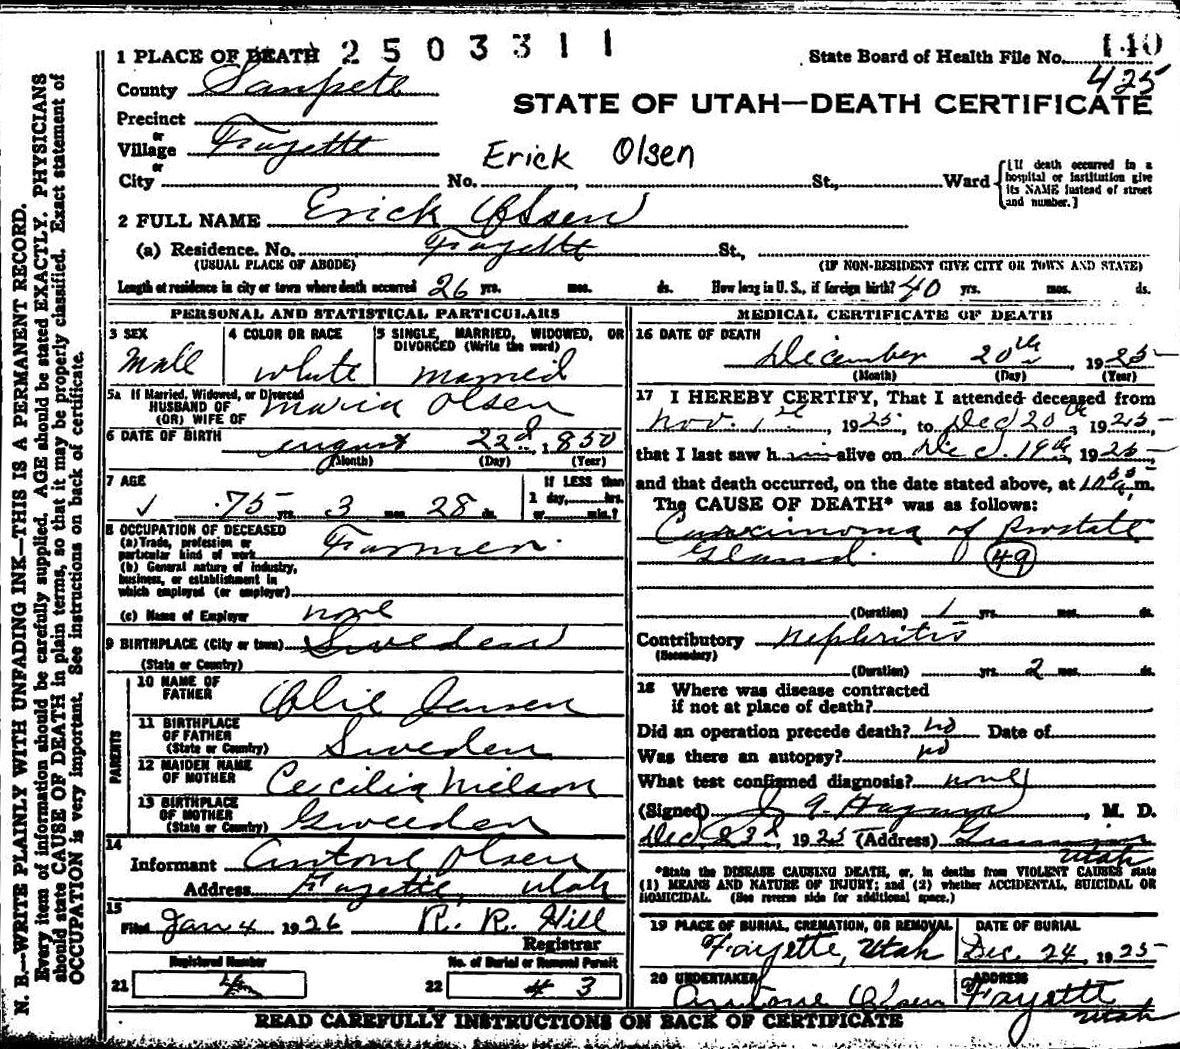 1 PLACE OF DEATH 2503311
State Board of Health File No. 140
425
County Sanpete
STATE OF UTAH—DEATH CERTIFICATE
Precinct
or
Village Fayette
Erick Olsen
or
City No. , St., Ward
[If death occurred in a hospital or institution give its NAME instead of street and number.]
2 FULL NAME Erick Olsen
(a) Residence. No. Fayette St.,
(USUAL PLACE OF ABODE) (IF NON-RESIDENT GIVE CITY OR TOWN AND STATE)
Length of residence in city or town where death occurred 26 yrs. mos. ds. How long in U. S., if foreign birth? 40 yrs. mos. ds.
PERSONAL AND STATISTICAL PARTICULARS
3 SEX
Male
4 COLOR OR RACE
white
5 SINGLE, MARRIED, WIDOWED, OR
DIVORCED (Write the word)
married
5a If Married, Widowed, or Divorced
HUSBAND OF
(OR) WIFE OF
Maria Olsen
6 DATE OF BIRTH
august 22d, 1850
(Month) (Day) (Year)
7 AGE
75 yrs. 3 mos. 28 ds.
If LESS than
1 day, hrs.
or min.?
8 OCCUPATION OF DECEASED
(a) Trade, profession or
particular kind of work Farmer
(b) General nature of industry,
business, or establishment in
which employed (or employer)
(c) Name of Employer none
9 BIRTHPLACE (City or town) Sweden
(State or Country)
PARENTS
10 NAME OF
FATHER
Olie Jensen
11 BIRTHPLACE
OF FATHER
(State or Country) Sweden
12 MAIDEN NAME
OF MOTHER Cecilia Nielson
13 BIRTHPLACE
OF MOTHER
(State or Country) Sweeden
14
Informant Antone Olsen
Address Fayette, Utah
15
Filed Jan 4 1926 R. R. Hill
Registrar
Registered Number
21
No. of Burial or Removal Permit
22 # 3
MEDICAL CERTIFICATE OF DEATH
16 DATE OF DEATH
December 20th, 1925
(Month) (Day) (Year)
17 I HEREBY CERTIFY, That I attended deceased from
Nov. 1st, 1925, to Dec 20th, 1925,
that I last saw him alive on Dec. 19th, 1925
and that death occurred, on the date stated above, at a.m.
The CAUSE OF DEATH* was as follows:
Carcinoma of prostate
Gland. 49
(Duration) 1 yrs. mos. ds.
Contributory Nephritis
(Secondary)
(Duration) yrs. 2 mos. ds.
18 Where was disease contracted
if not at place of death?
Did an operation precede death? no Date of
Was there an autopsy? no
What test confirmed diagnosis? none
(Signed) , M. D.
Dec. 23d, 1925 (Address) Gunnison
Utah
*State the DISEASE CAUSING DEATH, or, in deaths from VIOLENT CAUSES state
(1) MEANS AND NATURE OF INJURY; and (2) whether ACCIDENTAL, SUICIDAL OR
HOMICIDAL. (See reverse side for additional space.)
19 PLACE OF BURIAL, CREMATION, OR REMOVAL
Fayette, Utah
DATE OF BURIAL
Dec. 24, 1925
20 UNDERTAKER
Antone Olsen
ADDRESS
Fayette
Utah
READ CAREFULLY INSTRUCTIONS ON BACK OF CERTIFICATE
N. B.—WRITE PLAINLY WITH UNFADING INK—THIS IS A PERMANENT RECORD.
Every item of information should be carefully supplied. AGE should be stated EXACTLY. PHYSICIANS
should state CAUSE OF DEATH in plain terms, so that it may be properly classified. Exact statement of
OCCUPATION is very important. See instructions on back of certificate.